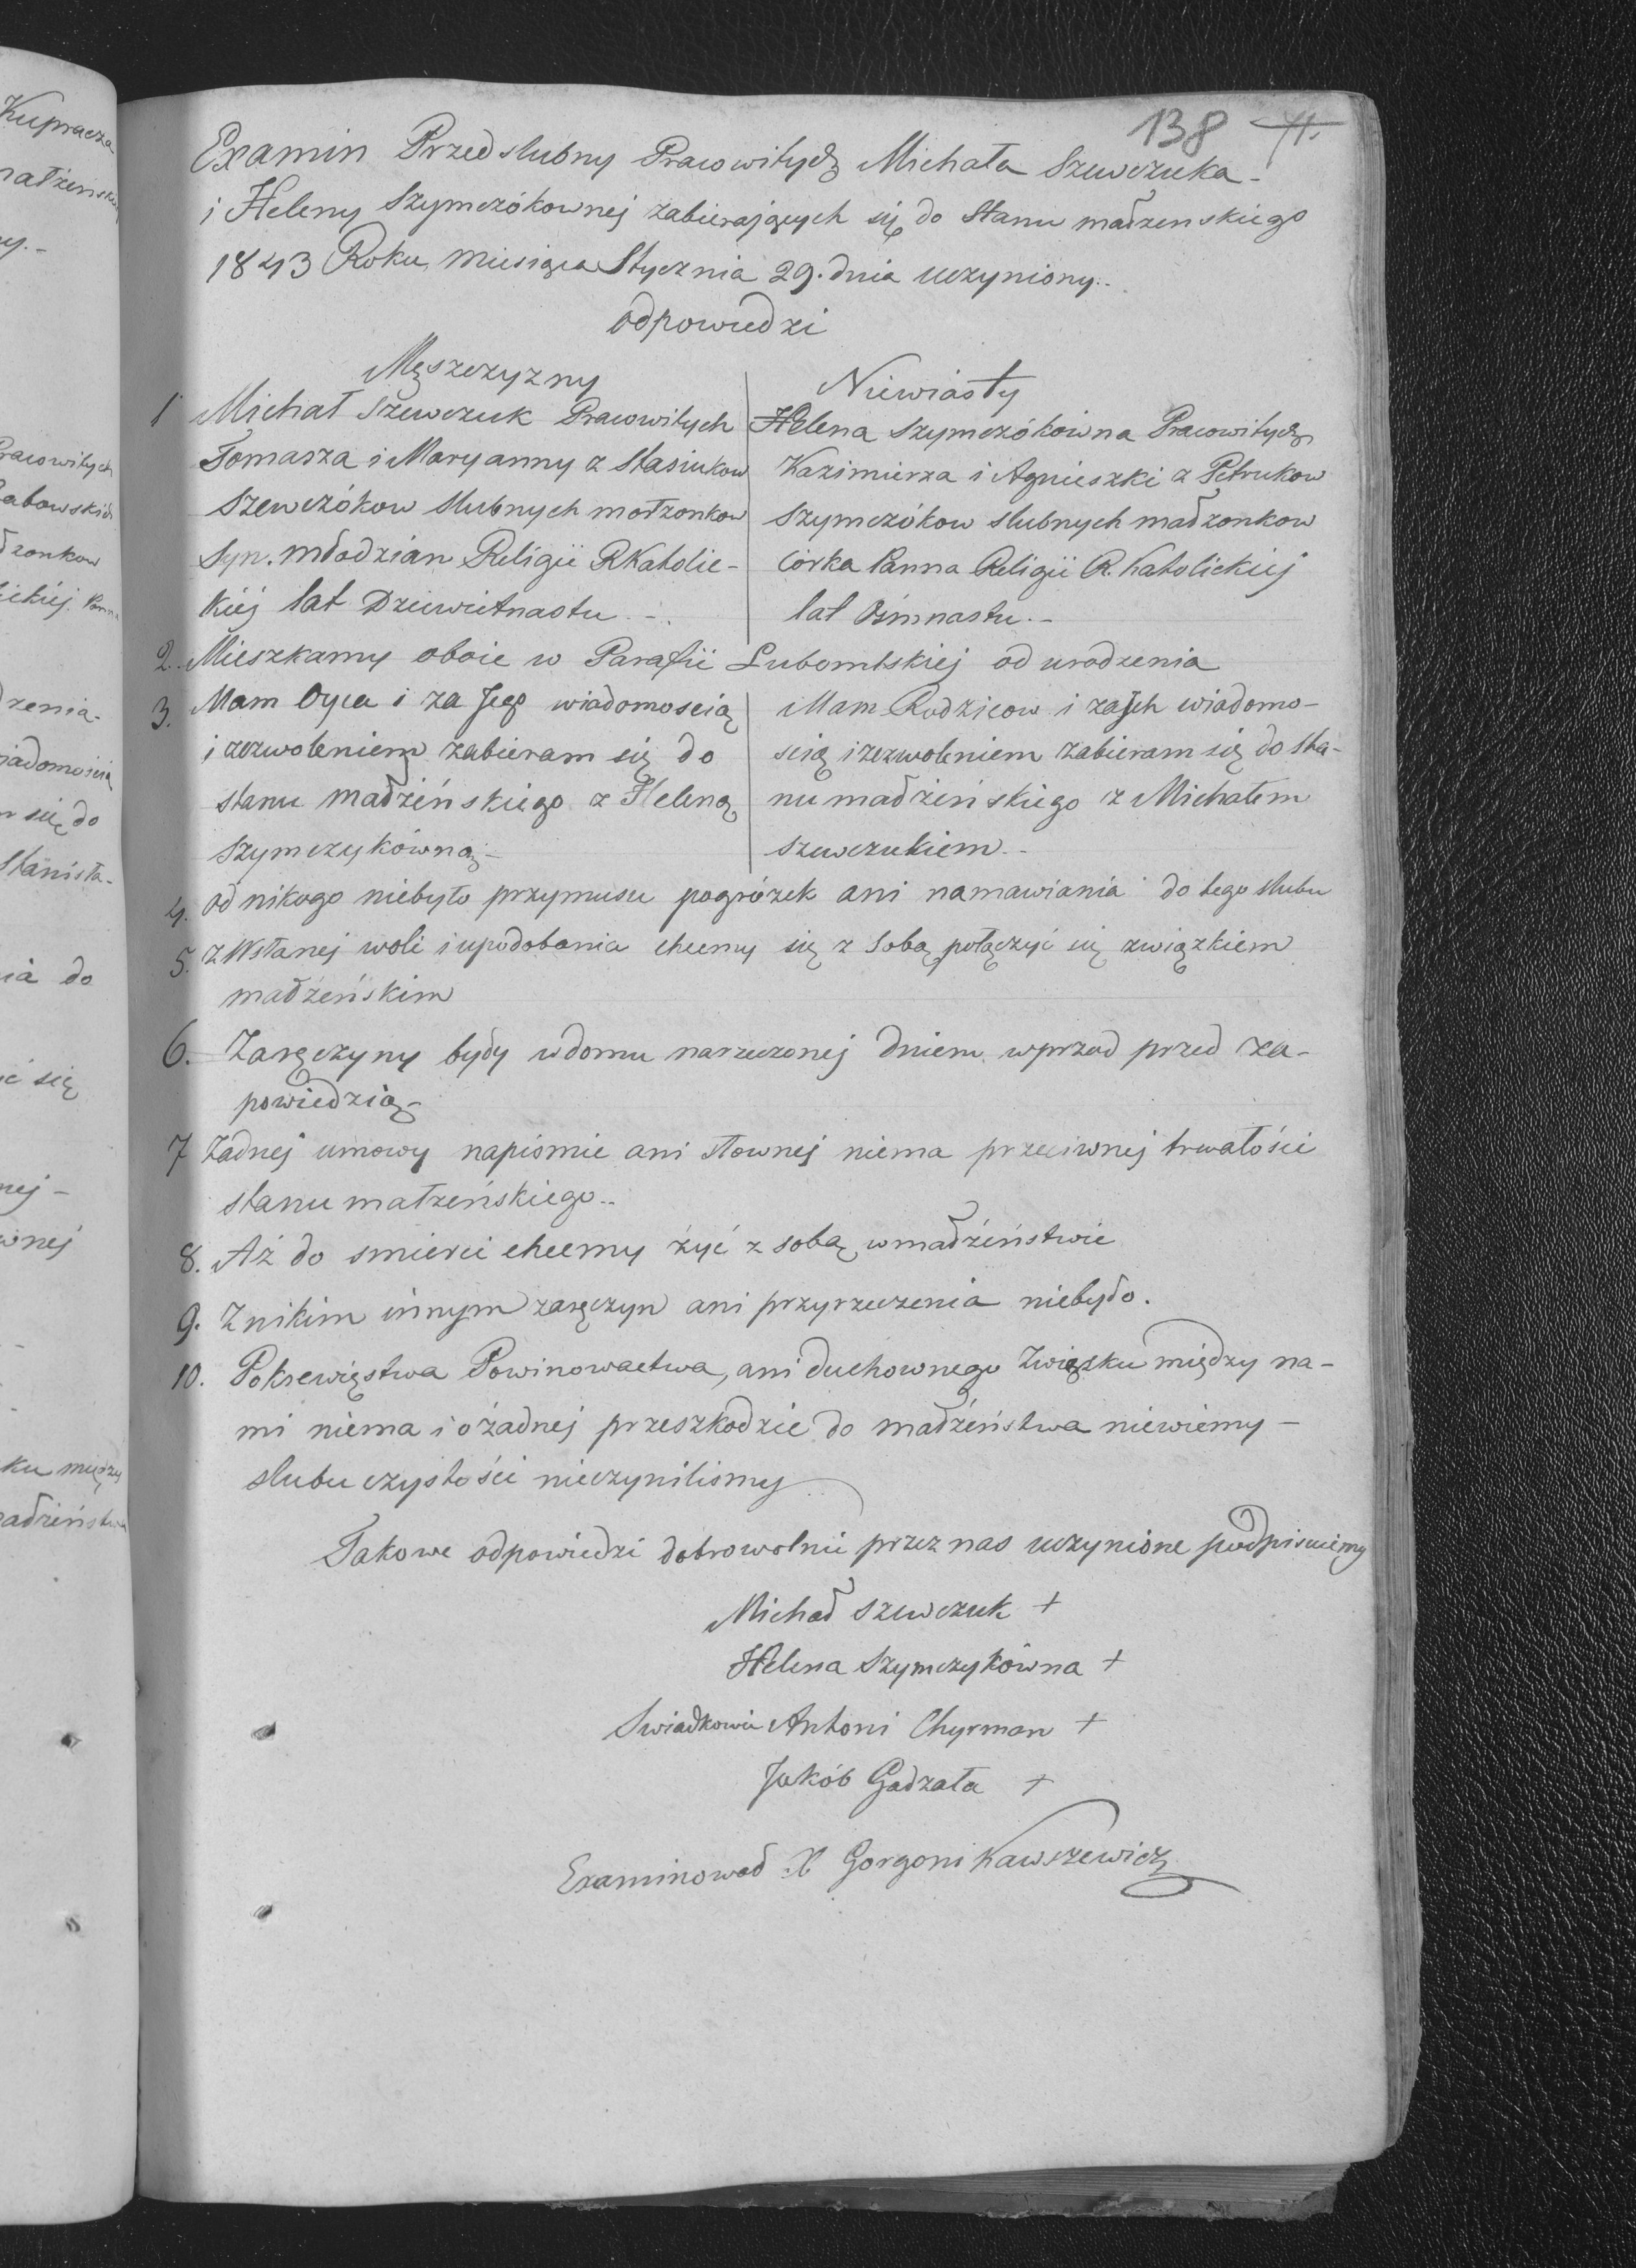 138 71.
Examin Przedslubny Pracowitych Michała Szewczuka -
i Heleny Szymczókownej zabierających się do Stanu małzenskiego
1843 Roku, miesiąca Stycznia 29. dnia uczyniony..
Odpowiedzi
Męszczyzny
1 Michał Szewczuk Pracowitych
Tomasza i Maryanny z Stasiukow
Szewczókow slubnych małzonkow
Syn. młodzian Religii RKatolic-
kiéj lat Dziewietnastu -.
Niewiasty
Helena Szymczókówna Pracowitych
Kazimierza i Agnieszki z Petrukow
Szymczókow slubnych małzonkow
córka Panna Religii R. Katolickiej
lat Osimnastu. -
2. Mieszkamy oboie w Parafii Lubomlskiej od urodzenia
3. Mam Oyca i za Jego wiadomoscią
i zezwoleniem zabieram się do
stanu małżeńskiego z Heleną
Szymczykówną -
Mam Rodzicow i za Jch wiadomo-
scią i zezwoleniem zabieram się do sta-
nu małżeńskiego z Michałem
szewczukiem -
4. od nikogo niebyło przymusu pogrózek ani namawiania do tego slubu
5. z Własnej woli i upodobania chcemy się z sobą połączyć się związkiem
małżeńskim
6. Zaręczyny były w domu narzeczonej dniem wprzod przed za-
powiedzią -
7 Żadnej umowy napismie ani słownej niema przeciwnej trwałości
stanu małzeńskiego..
8. Aż do smierci chcemy żyć z sobą w małżeństwie
9. Z nikim innym zaręczyn ani przyrzeczenia niebyło.
10. Pokrewięstwa Powinowactwa, ani duchownego Związku między na-
mi niema i o żadnej przeszkodzie do małżeństwa niewiemy -
slubu czystości nieczynilismy
Takowe odpowiedzi dobrowolnie przez nas uczynione podpisuiemy
Michał Szewczuk +
Helena Szymczykówna +
Swiadkowie Antoni Chyrman +
Jakób Gadzała +
Examinował X Gorgoni Kawszewicz